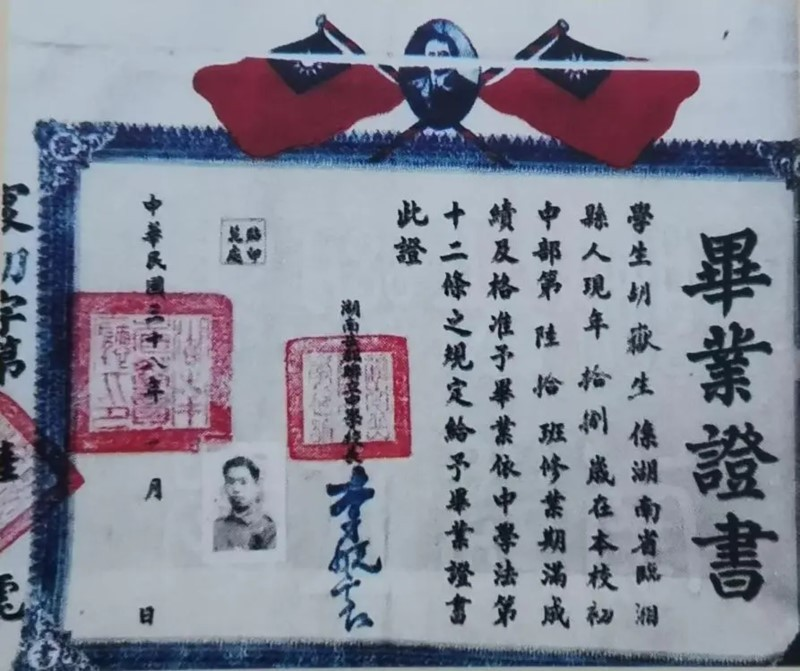 畢業證書
學生胡嶽生係湖南省臨湘
縣人現年拾捌歲在本校初
中部第陸拾班修業期滿成
績及格准予畢業依中學法第
十二條之規定給予畢業證書
此證
湖南
聯立中學校長
中華民國三十八年一月 日
字第